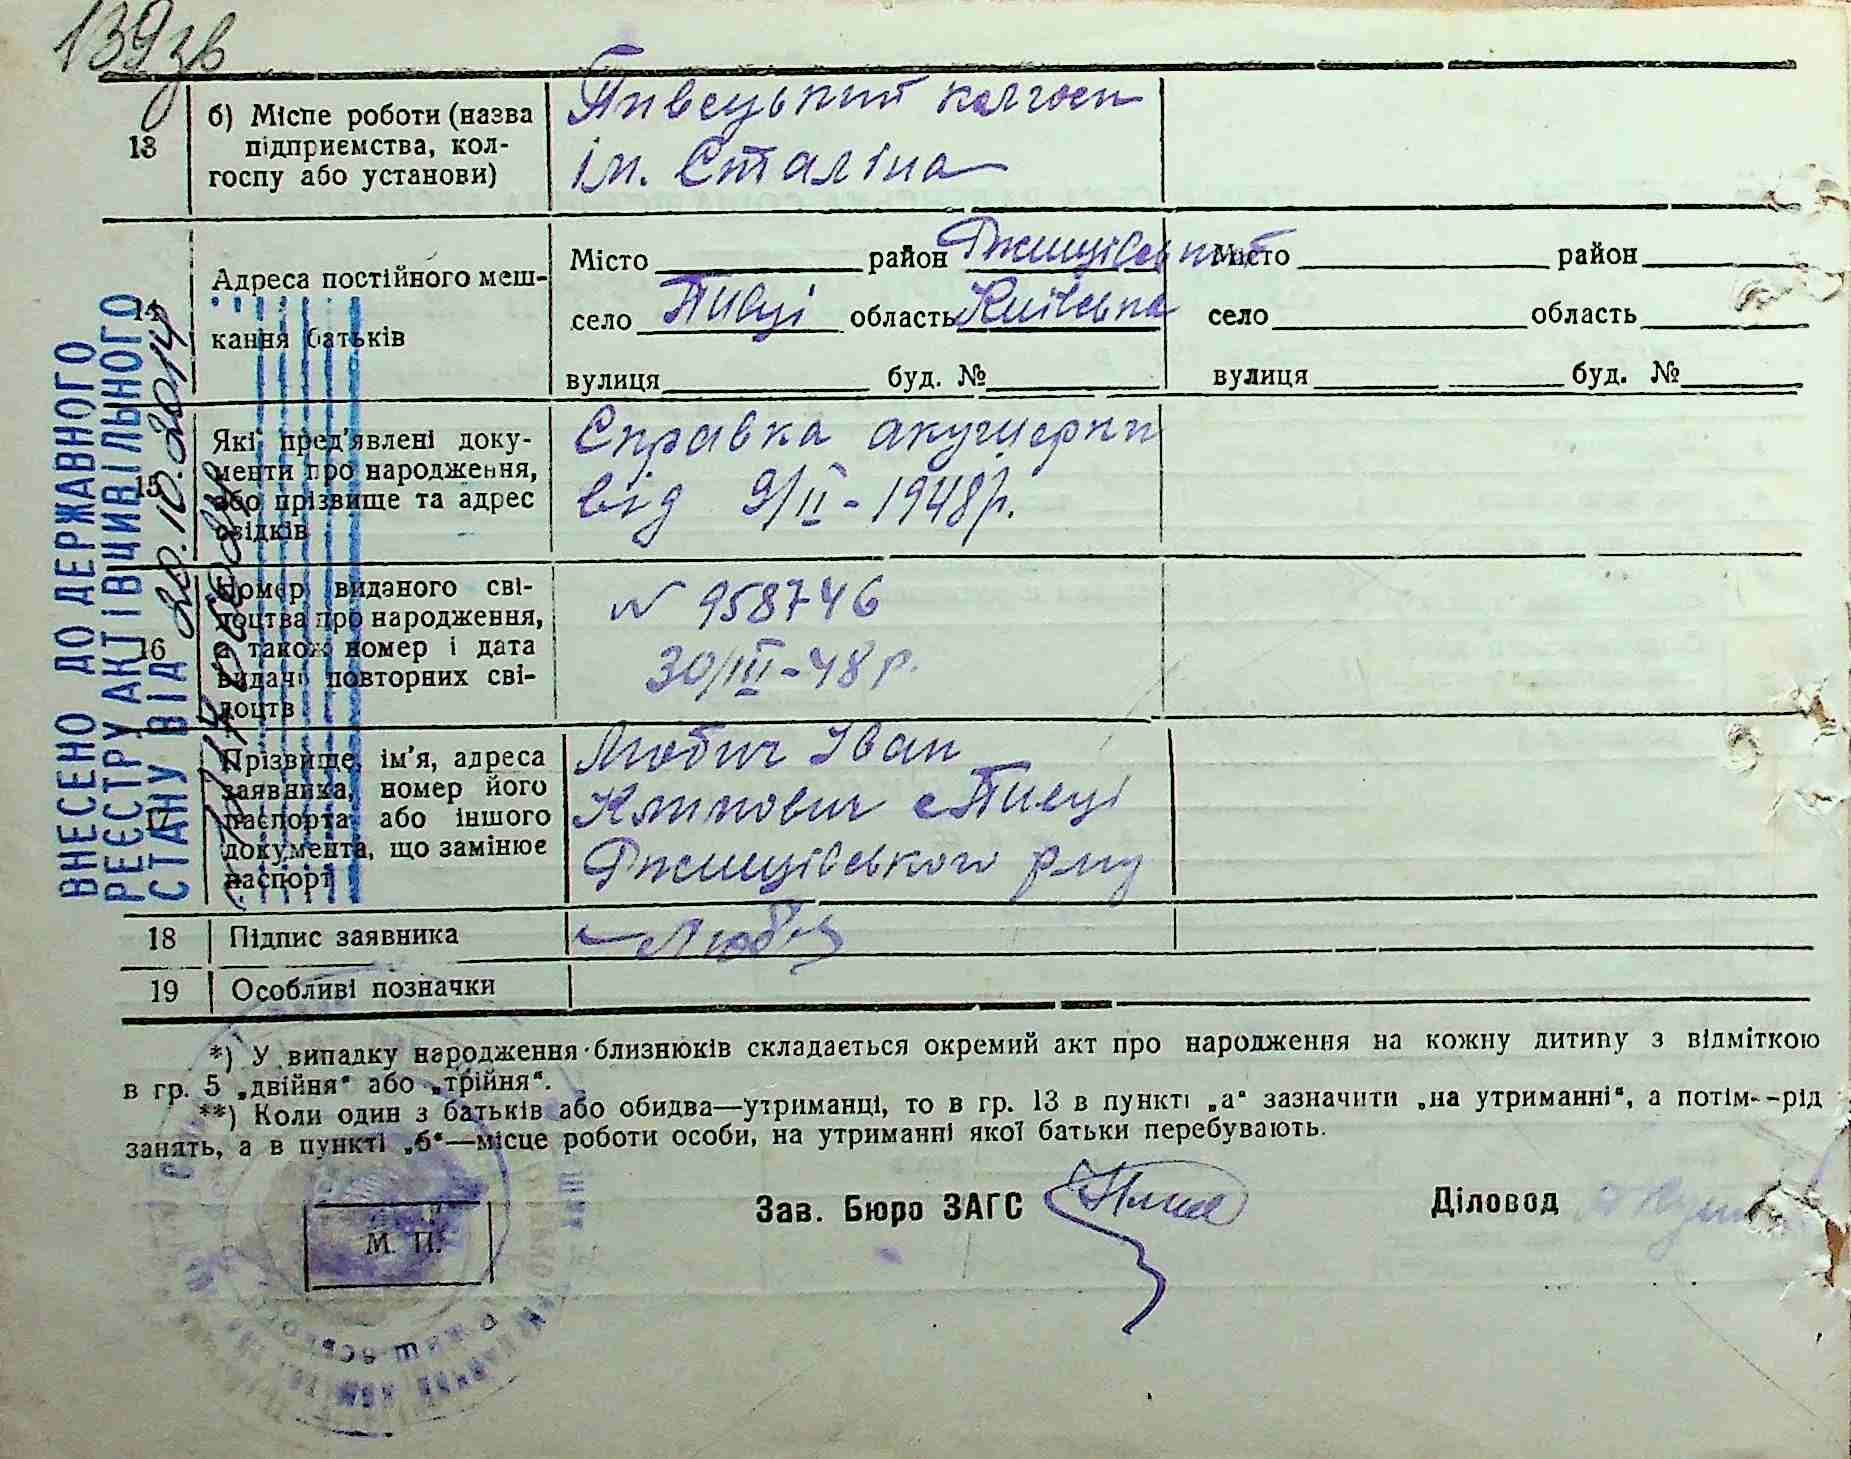 139зв
13
б) Місце роботи (назва
підприємства, кол-
госпу або установи)
Пивецький колгосп
ім. Сталіна
14
Адреса постійного меш-
кання батьків
Місто район Ржищівський
село Пивці область Київська
вулиця буд. №
Місто район
село область
вулиця буд. №
15
Які пред'явлені доку-
менти про народження,
або прізвище та адрес
свідків
Справка акушерки
від 9/II-1948р.
16
Номер виданого сві-
доцтва про народження,
а також номер і дата
видачі повторних сві-
доцтв
N 958746
30/III-48р.
17
Прізвище, ім'я, адреса
заявника, номер його
паспорта або іншого
документа, що замінює
паспорт
Любич Іван
с Пивці
Ржищівського р-ну
18 Підпис заявника
19 Особливі позначки
ВНЕСЕНО ДО ДЕРЖАВНОГО
РЕЄСТРУ АКТІВ ЦИВІЛЬНОГО
СТАНУ ВІД 20.10.2014
*) У випадку народження близнюків складається окремий акт про народження на кожну дитину з відміткою
в гр. 5 „двійня" або „трійня".
**) Коли один з батьків або обидва—утриманці, то в гр. 13 в пункті „а" зазначити „на утриманні", а потім--рід
занять, а в пункті „б"—місце роботи особи, на утриманні якої батьки перебувають.
М. П.
Зав. Бюро ЗАГС
Діловод